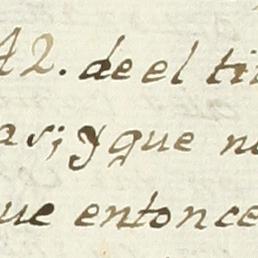 42. de el tit
ar; y que n
ue entonce